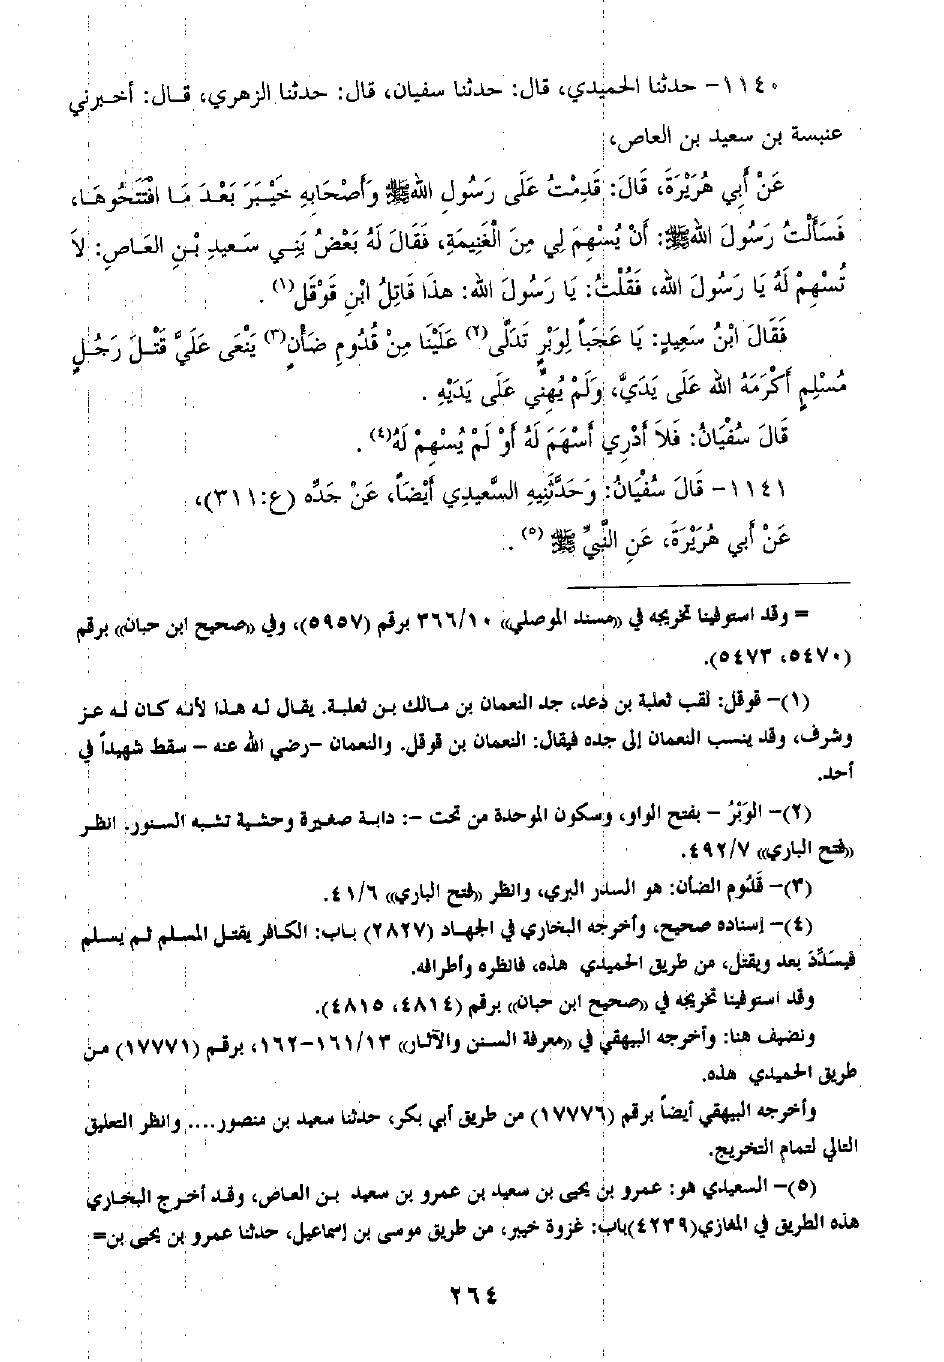 ١١٤٠- حدثنا الحميدي، قال: حدثنا سفيان، قال: حدثنا الزهري، قـال: أخـبرني
عنبسة بن سعيد بن العاص،
عَنْ أَبِي هُرَيْرَةَ، قَالَ: قَدِمْتُ عَلَى رَسُولِ اللهِ ﷺ وَأَصْحَابِهِ خَيْبَرَ بَعْدَ مَا افْتَتَحُوهَا،
فَسَأَلْتُ رَسُولَ اللهِ ﷺ: أَنْ يُسْهِمَ لِي مِنَ الْغَنِيمَةِ، فَقَالَ لَهُ بَعْضُ بَنِي سَعِيدِ بْنِ العَاصِ: لاَ
تُسْهِمْ لَهُ يَا رَسُولَ الله، فَقُلْتُ: يَا رَسُولَ الله: هذَا قَاتِلُ ابْنِ قَوْقَل(١) .
فَقَالَ ابْنُ سَعِيدٍ: يَا عَجَباً لِوَبْرٍ تَدَلَّى(٢) عَلَيْنَا مِنْ قُدُومِ ضَأْنٍ(٣) يَنْعَى عَلَيَّ قَتْلَ رَجُلٍ
مُسْلِمٍ أَكْرَمَهُ الله عَلَى يَدَيَّ، وَلَمْ يُهِنِّي عَلَى يَدَيْهِ .
قَالَ سُفْيَانُ: فَلاَ أَدْرِي أَسْهَمَ لَهُ أَوْ لَمْ يُسْهِمْ لَهُ(٤) .
١١٤١- قَالَ سُفْيَانُ: وَحَدَّثَنِيهِ السَّعِيدِي أَيْضَاً، عَنْ جَدِّه (ع:٣١١)،
عَنْ أَبِي هُرَيْرَةَ، عَنِ النَّبِيِّ ﷺ (٥) .
= وقد استوفينا تخريجه في «مسند الموصلي» ٣٦٦/١٠ برقم (٥٩٥٧)، وفي «صحيح ابن حبان» برقم
(٥٤٧٠، ٥٤٧٣).
(١)- قوقل: لقب ثعلبة بن دعد، جد النعمان بن مـالك بـن ثعلبة. يقال لـه هـذا لأنـه كـان لـه عـز
وشرف، وقد ينسب النعمان إلى جده فيقال: النعمان بن قوقل. والنعمان -رضي الله عنه - سقط شهيداً في
أحد.
(٢)- الوَبْرُ - بفتح الواو، وسكون الموحدة من تحت -: دابـة صغيرة وحشية تشبه السنور. انظـر
«فتح الباري» ٤٩٢/٧.
(٣)- قَدُوم الضأن: هو السدر البري، وانظر «فتح الباري» ٤١/٦.
(٤)- إسناده صحيح، وأخرجه البخاري في الجهاد (٢٨٢٧) بـاب: الكـافر يقتـل المسلم ثـم يسلم
فيسَدَّدَ بعد ويقتل، من طريق الحميدي هذه، فانظره وأطرافه.
وقد استوفينا تخريجه في «صحيح ابن حبان» برقم (٤٨١٤، ٤٨١٥).
ونضيف هنا: وأخرجه البيهقي في «معرفة السنن والآثـار» ١٦١/١٣-١٦٢، برقـم (١٧٧٧١) مـن
طريق الحميدي هذه.
وأخرجه البيهقي أيضاً برقم (١٧٧٧٦) من طريق أبي بكر، حدثنا سعيد بن منصور.... وانظر التعليق
التالي لتمام التخريج.
(٥)- السعيدي هو: عمرو بن يحيى بن سعيد بن عمرو بن سعيد بـن العـاص، وقـد أخـرج البخـاري
هذه الطريق في المغازي(٤٢٣٩)باب: غزوة خيبر، من طريق موسى بن إسماعيل، حدثنا عمرو بن يحيى بن=
٢٦٤